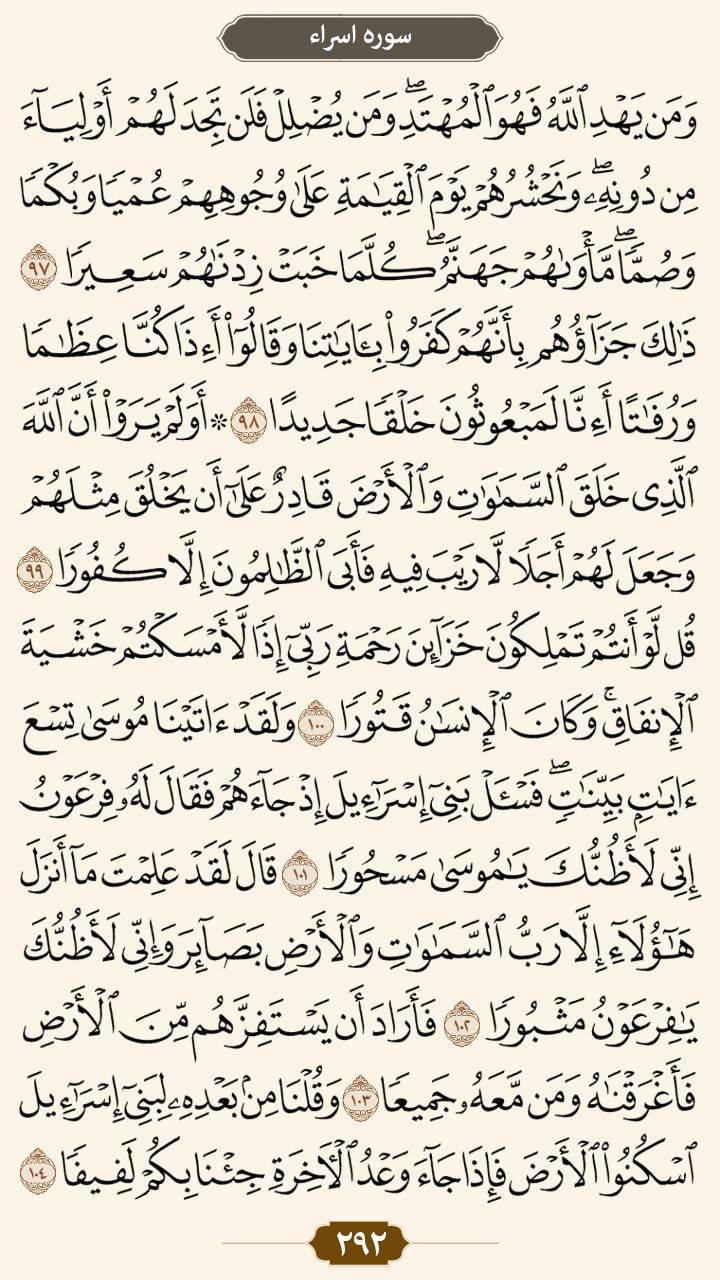 سوره اسراء
وَمَن يَهْدِ ٱللَّهُ فَهُوَ ٱلْمُهْتَدِۖ وَمَن يُضْلِلْ فَلَن تَجِدَ لَهُمْ أَوْلِيَآءَ
مِن دُونِهِۦۖ وَنَحْشُرُهُمْ يَوْمَ ٱلْقِيَٰمَةِ عَلَىٰ وُجُوهِهِمْ عُمْيًا وَبُكْمًا
وَصُمًّاۖ مَّأْوَىٰهُمْ جَهَنَّمُۖ كُلَّمَا خَبَتْ زِدْنَٰهُمْ سَعِيرًا ۹۷
ذَٰلِكَ جَزَآؤُهُم بِأَنَّهُمْ كَفَرُوا۟ بِـَٔايَٰتِنَا وَقَالُوٓا۟ أَءِذَا كُنَّا عِظَٰمًا
وَرُفَٰتًا أَءِنَّا لَمَبْعُوثُونَ خَلْقًا جَدِيدًا ۹۸ * أَوَلَمْ يَرَوْا۟ أَنَّ ٱللَّهَ
ٱلَّذِى خَلَقَ ٱلسَّمَٰوَٰتِ وَٱلْأَرْضَ قَادِرٌ عَلَىٰٓ أَن يَخْلُقَ مِثْلَهُمْ
وَجَعَلَ لَهُمْ أَجَلًا لَّا رَيْبَ فِيهِ فَأَبَى ٱلظَّٰلِمُونَ إِلَّا كُفُورًا ۹۹
قُل لَّوْ أَنتُمْ تَمْلِكُونَ خَزَآئِنَ رَحْمَةِ رَبِّىٓ إِذًا لَّأَمْسَكْتُمْ خَشْيَةَ
ٱلْإِنفَاقِۚ وَكَانَ ٱلْإِنسَٰنُ قَتُورًا ۱۰۰ وَلَقَدْ ءَاتَيْنَا مُوسَىٰ تِسْعَ
ءَايَٰتٍۭ بَيِّنَٰتٍۖ فَسْـَٔلْ بَنِىٓ إِسْرَٰٓءِيلَ إِذْ جَآءَهُمْ فَقَالَ لَهُۥ فِرْعَوْنُ
إِنِّى لَأَظُنُّكَ يَٰمُوسَىٰ مَسْحُورًا ۱۰۱ قَالَ لَقَدْ عَلِمْتَ مَآ أَنزَلَ
هَٰٓؤُلَآءِ إِلَّا رَبُّ ٱلسَّمَٰوَٰتِ وَٱلْأَرْضِ بَصَآئِرَ وَإِنِّى لَأَظُنُّكَ
يَٰفِرْعَوْنُ مَثْبُورًا ۱۰۲ فَأَرَادَ أَن يَسْتَفِزَّهُم مِّنَ ٱلْأَرْضِ
فَأَغْرَقْنَٰهُ وَمَن مَّعَهُۥ جَمِيعًا ۱۰۳ وَقُلْنَا مِنۢ بَعْدِهِۦ لِبَنِىٓ إِسْرَٰٓءِيلَ
ٱسْكُنُوا۟ ٱلْأَرْضَ فَإِذَا جَآءَ وَعْدُ ٱلْـَٔاخِرَةِ جِئْنَا بِكُمْ لَفِيفًا ۱۰۴
۲۹۲